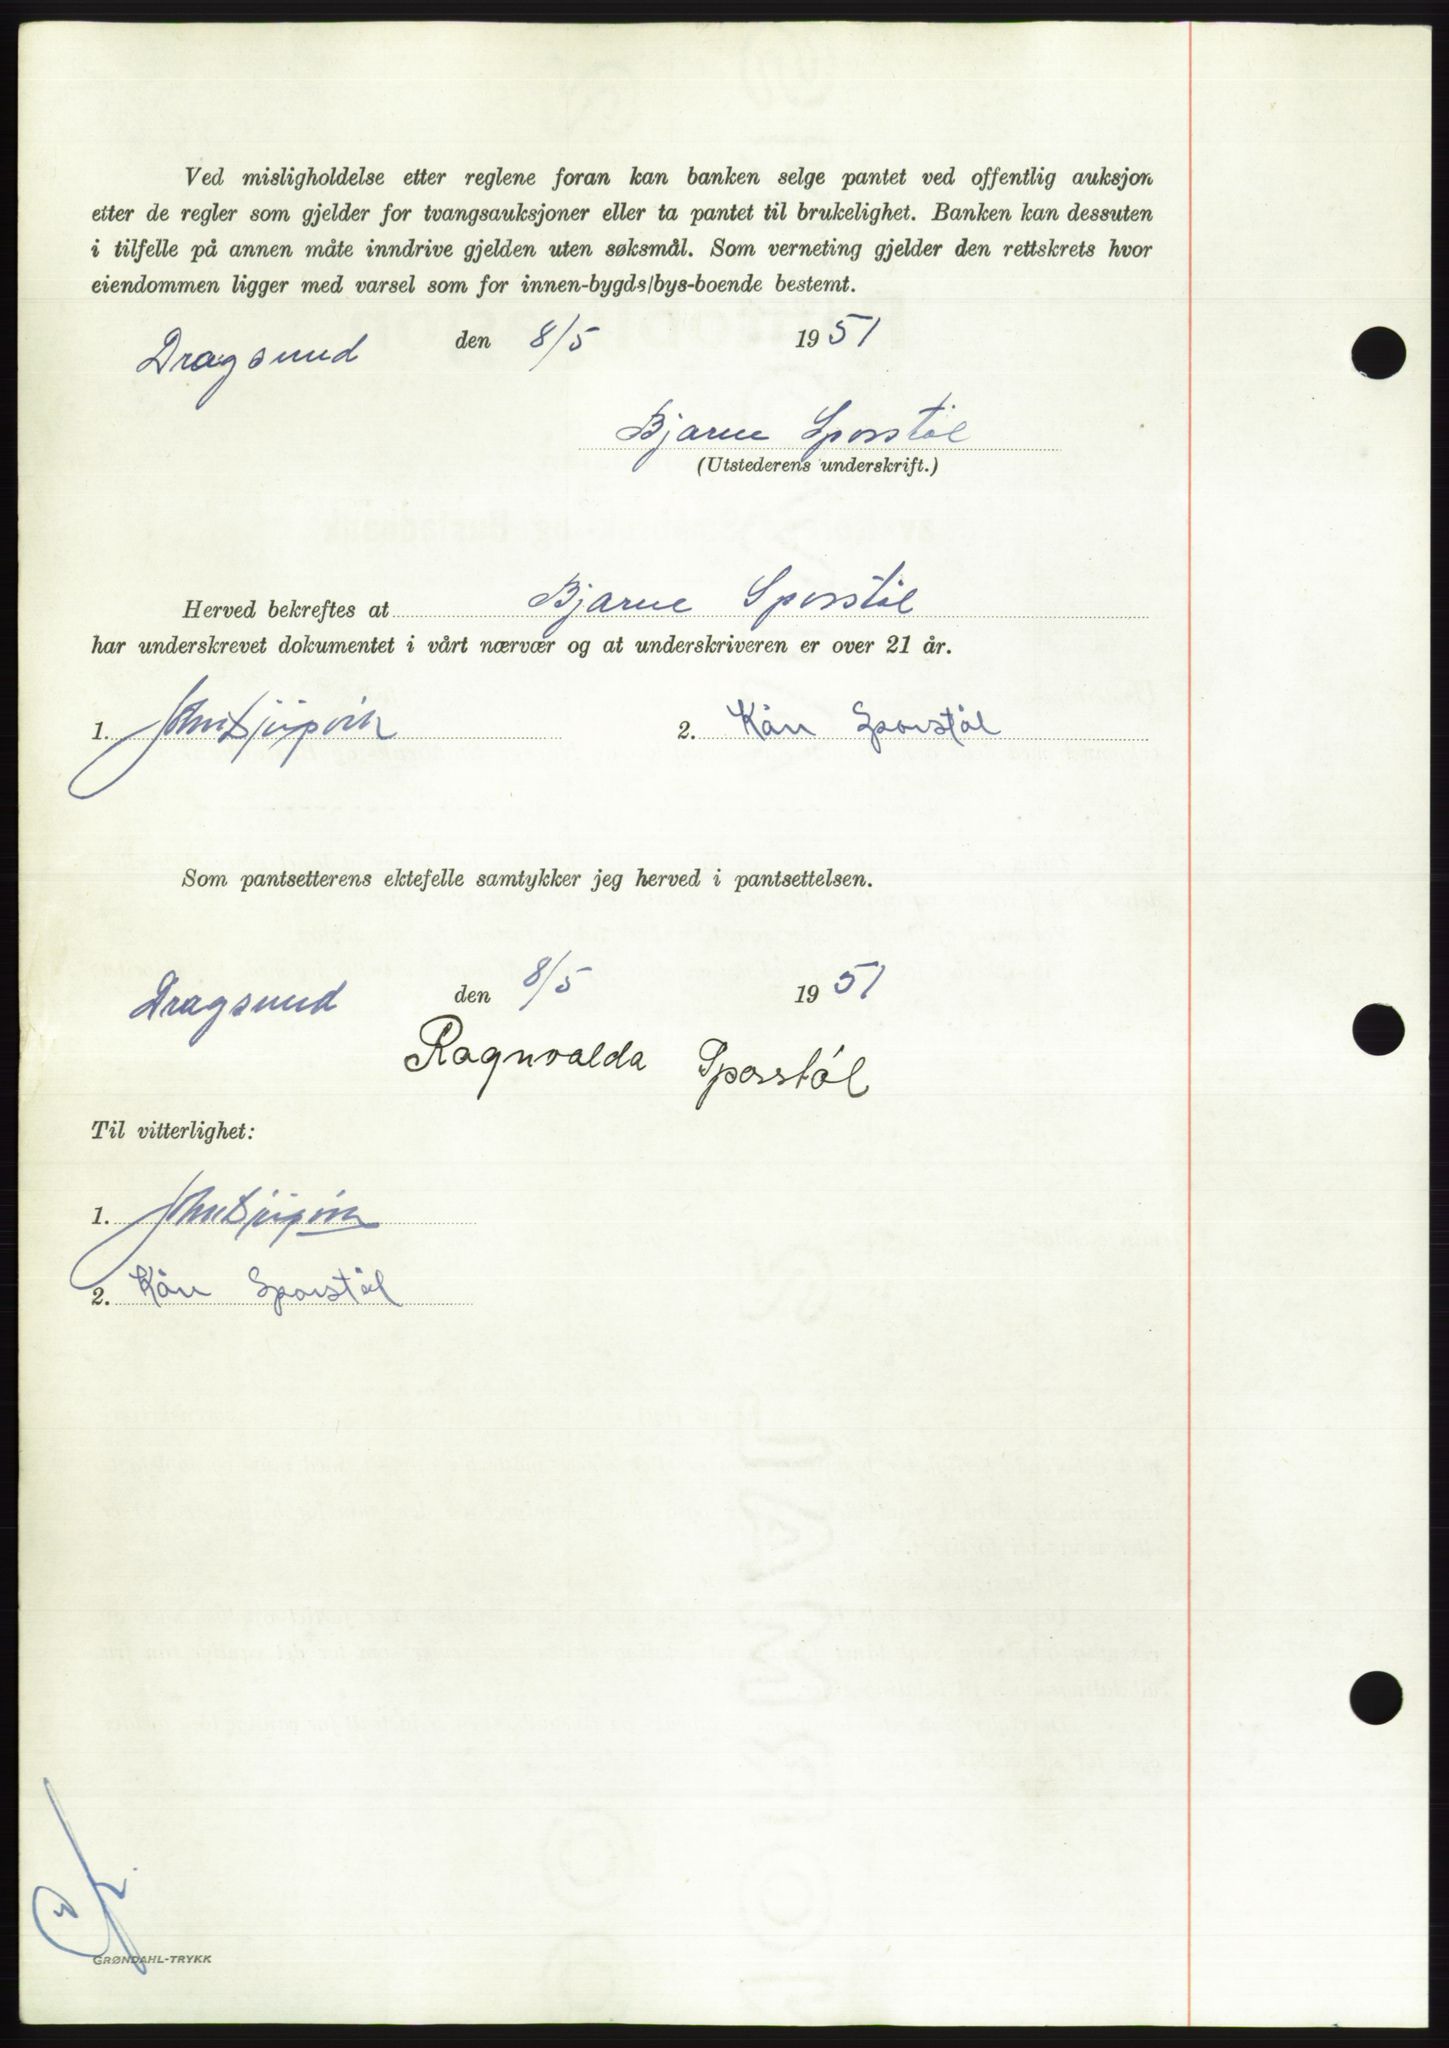 Ved misligholdelse etter reglene foran kan banken selge pantet ved offentlig auksjon
etter de regler som gjelder for tvangsauksjoner eller ta pantet til brukelighet. Banken kan dessuten
i tilfelle på annen måte inndrive gjelden uten søksmål. Som verneting gjelder den rettskrets hvor
eiendommen ligger med varsel som for innen-bygds/bys-boende bestemt.
Dragsund den 8/5 1951
Bjarne Sporstøl
(Utstederens underskrift.)
Herved bekreftes at Bjarne Sporstøl
har underskrevet dokumentet i vårt nærvær og at underskriveren er over 21 år.
1. John Djupvik 2. Kåre Sporstøl
Som pantsetterens ektefelle samtykker jeg herved i pantsettelsen.
Dragsund den 8/5 1951
Ragnvalda Sporstøl
Til vitterlighet:
1. John Djupvik
2. Kåre Sporstøl
GRØNDAHL-TRYKK